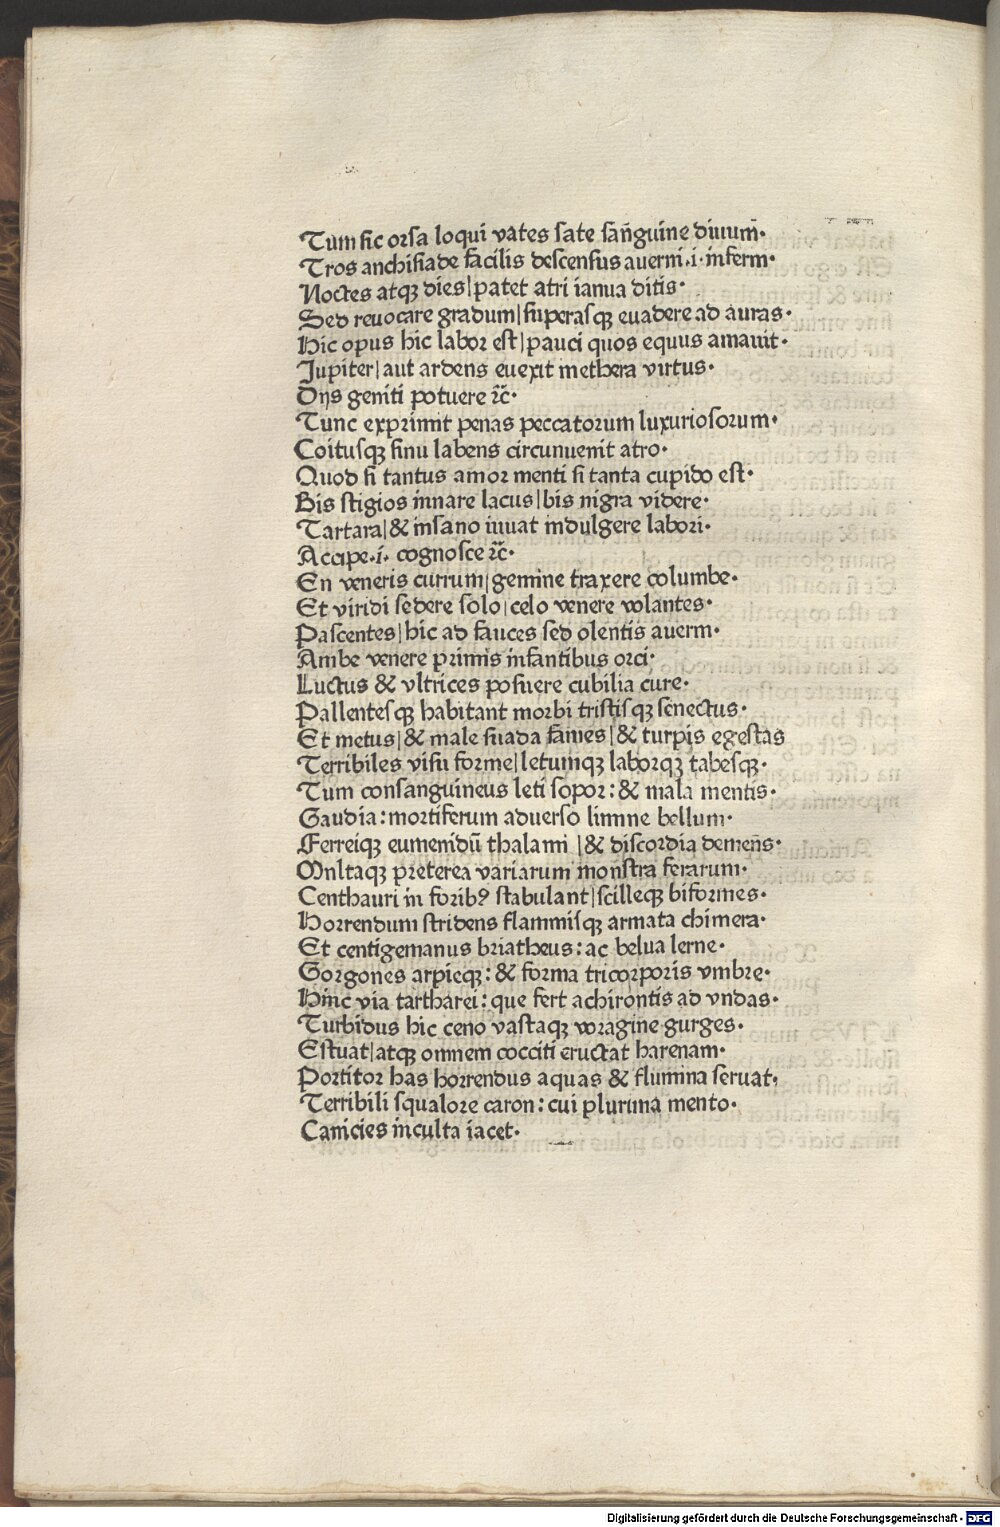 Tum sic orsa loqui vates sate sañguine diuum̄.
Tros anchisiade facilis descensus auerni .i. inferni.
Noctes atqꝫ dies| patet atri ianua ditis.
Sed reuocare gradum| superasqꝫ euadere ad auras.
Hic opus hic labor est| pauci quos equus amauit.
Jupiter| aut ardens euexit in ethera virtus.
Dijs geniti potuere ꝛc̄.
Tunc exprimit penas peccatorum luxuriosorum.
Coitusqꝫ sinu labens circunuenit atro.
Quod si tantus amor menti si tanta cupido est.
Bis stigios innare lacus| bis nigra videre.
Tartara| & insano iuuat indulgere labori.
Accipe .i. cognosce ꝛc̄.
En veneris currum| gemine traxere columbe.
Et viridi sedere solo| celo venere volantes.
Pascentes| hic ad fauces sed olentis auerni.
Ambe venere primis infantibus orci.
Luctus & vltrices posuere cubilia cure.
Pallentesqꝫ habitant morbi tristisqꝫ senectus.
Et metus| & male suada fames| & turpis egestas
Terribiles visu forme| letumqꝫ laborqꝫ tabesqꝫ.
Tum consanguineus leti sopor: & mala mentis.
Gaudia: mortiferum aduerso limine bellum.
Ferreiqꝫ eumenidū thalami | & discordia demen̄s.
Multaqꝫ preterea variarum monstra ferarum.
Centhauri in foribꝰ stabulant| scilleqꝫ biformes.
Horrendum stridens flammisqꝫ armata chimera.
Et centigemanus briatheus: ac belua lerne.
Gorgones arpieqꝫ: & forma tricorporis vmbre.
Hinc via tartharei: que fert achirontis ad vndas.
Turbidus hic ceno vastaqꝫ voragine gurges.
Estuat| atqꝫ omnem cocciti eructat harenam.
Portitor has horrendus aquas & flumina seruat,
Terribili squalore caron: cui plurima mento.
Canicies inculta iacet.
Digitalisierung gefördert durch die Deutsche Forschungsgemeinschaft - DFG